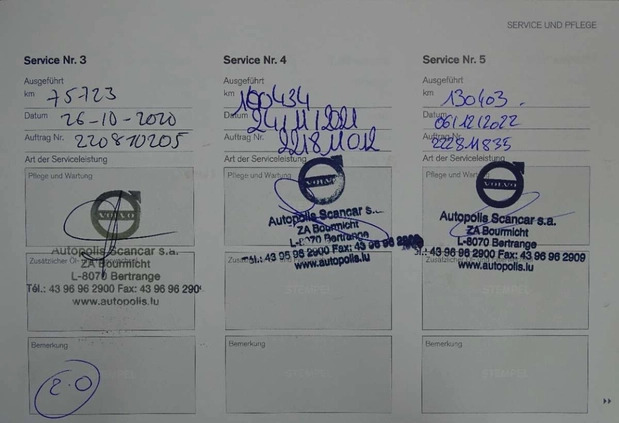 SERVICE UND PFLEGE
Service Nr. 3
Ausgeführt
km 75723
Datum 26-10-2020
Auftrag Nr. 220810205
Art der Serviceleistung
Pflege und Wartung
VOLVO
Autopolis Scancar s.a.
ZA Bourmicht
L-8070 Bertrange
Tél.: 43 96 96 2900 Fax: 43 96 96 290
www.autopolis.lu
Zusätzlicher Öl
Bemerkung
STEMPEL
2.0
Service Nr. 4
Ausgeführt
km 100434
Datum 24/11/2021
Auftrag Nr. 221811012
Art der Serviceleistung
Pflege und Wartung
VOLVO
Autopolis Scancar s.
ZA Bourmicht
L-8070 Bertrange
Tél.: 43 96 96 2900 Fax: 43 96 96 2909
www.autopolis.lu
STEMPEL
Bemerkung
STEMPEL
Service Nr. 5
Ausgeführt
km 130403.
Datum 06/12/2022
Auftrag Nr. 222811835
Art der Serviceleistung
Pflege und Wartung
VOLVO
Autopolis Scancar s.a.
ZA Bourmicht
L-8070 Bertrange
.: 43 96 96 2900 Fax: 43 96 96 2909
www.autopolis.lu
STEMPEL
Bemerkung
STEMPEL